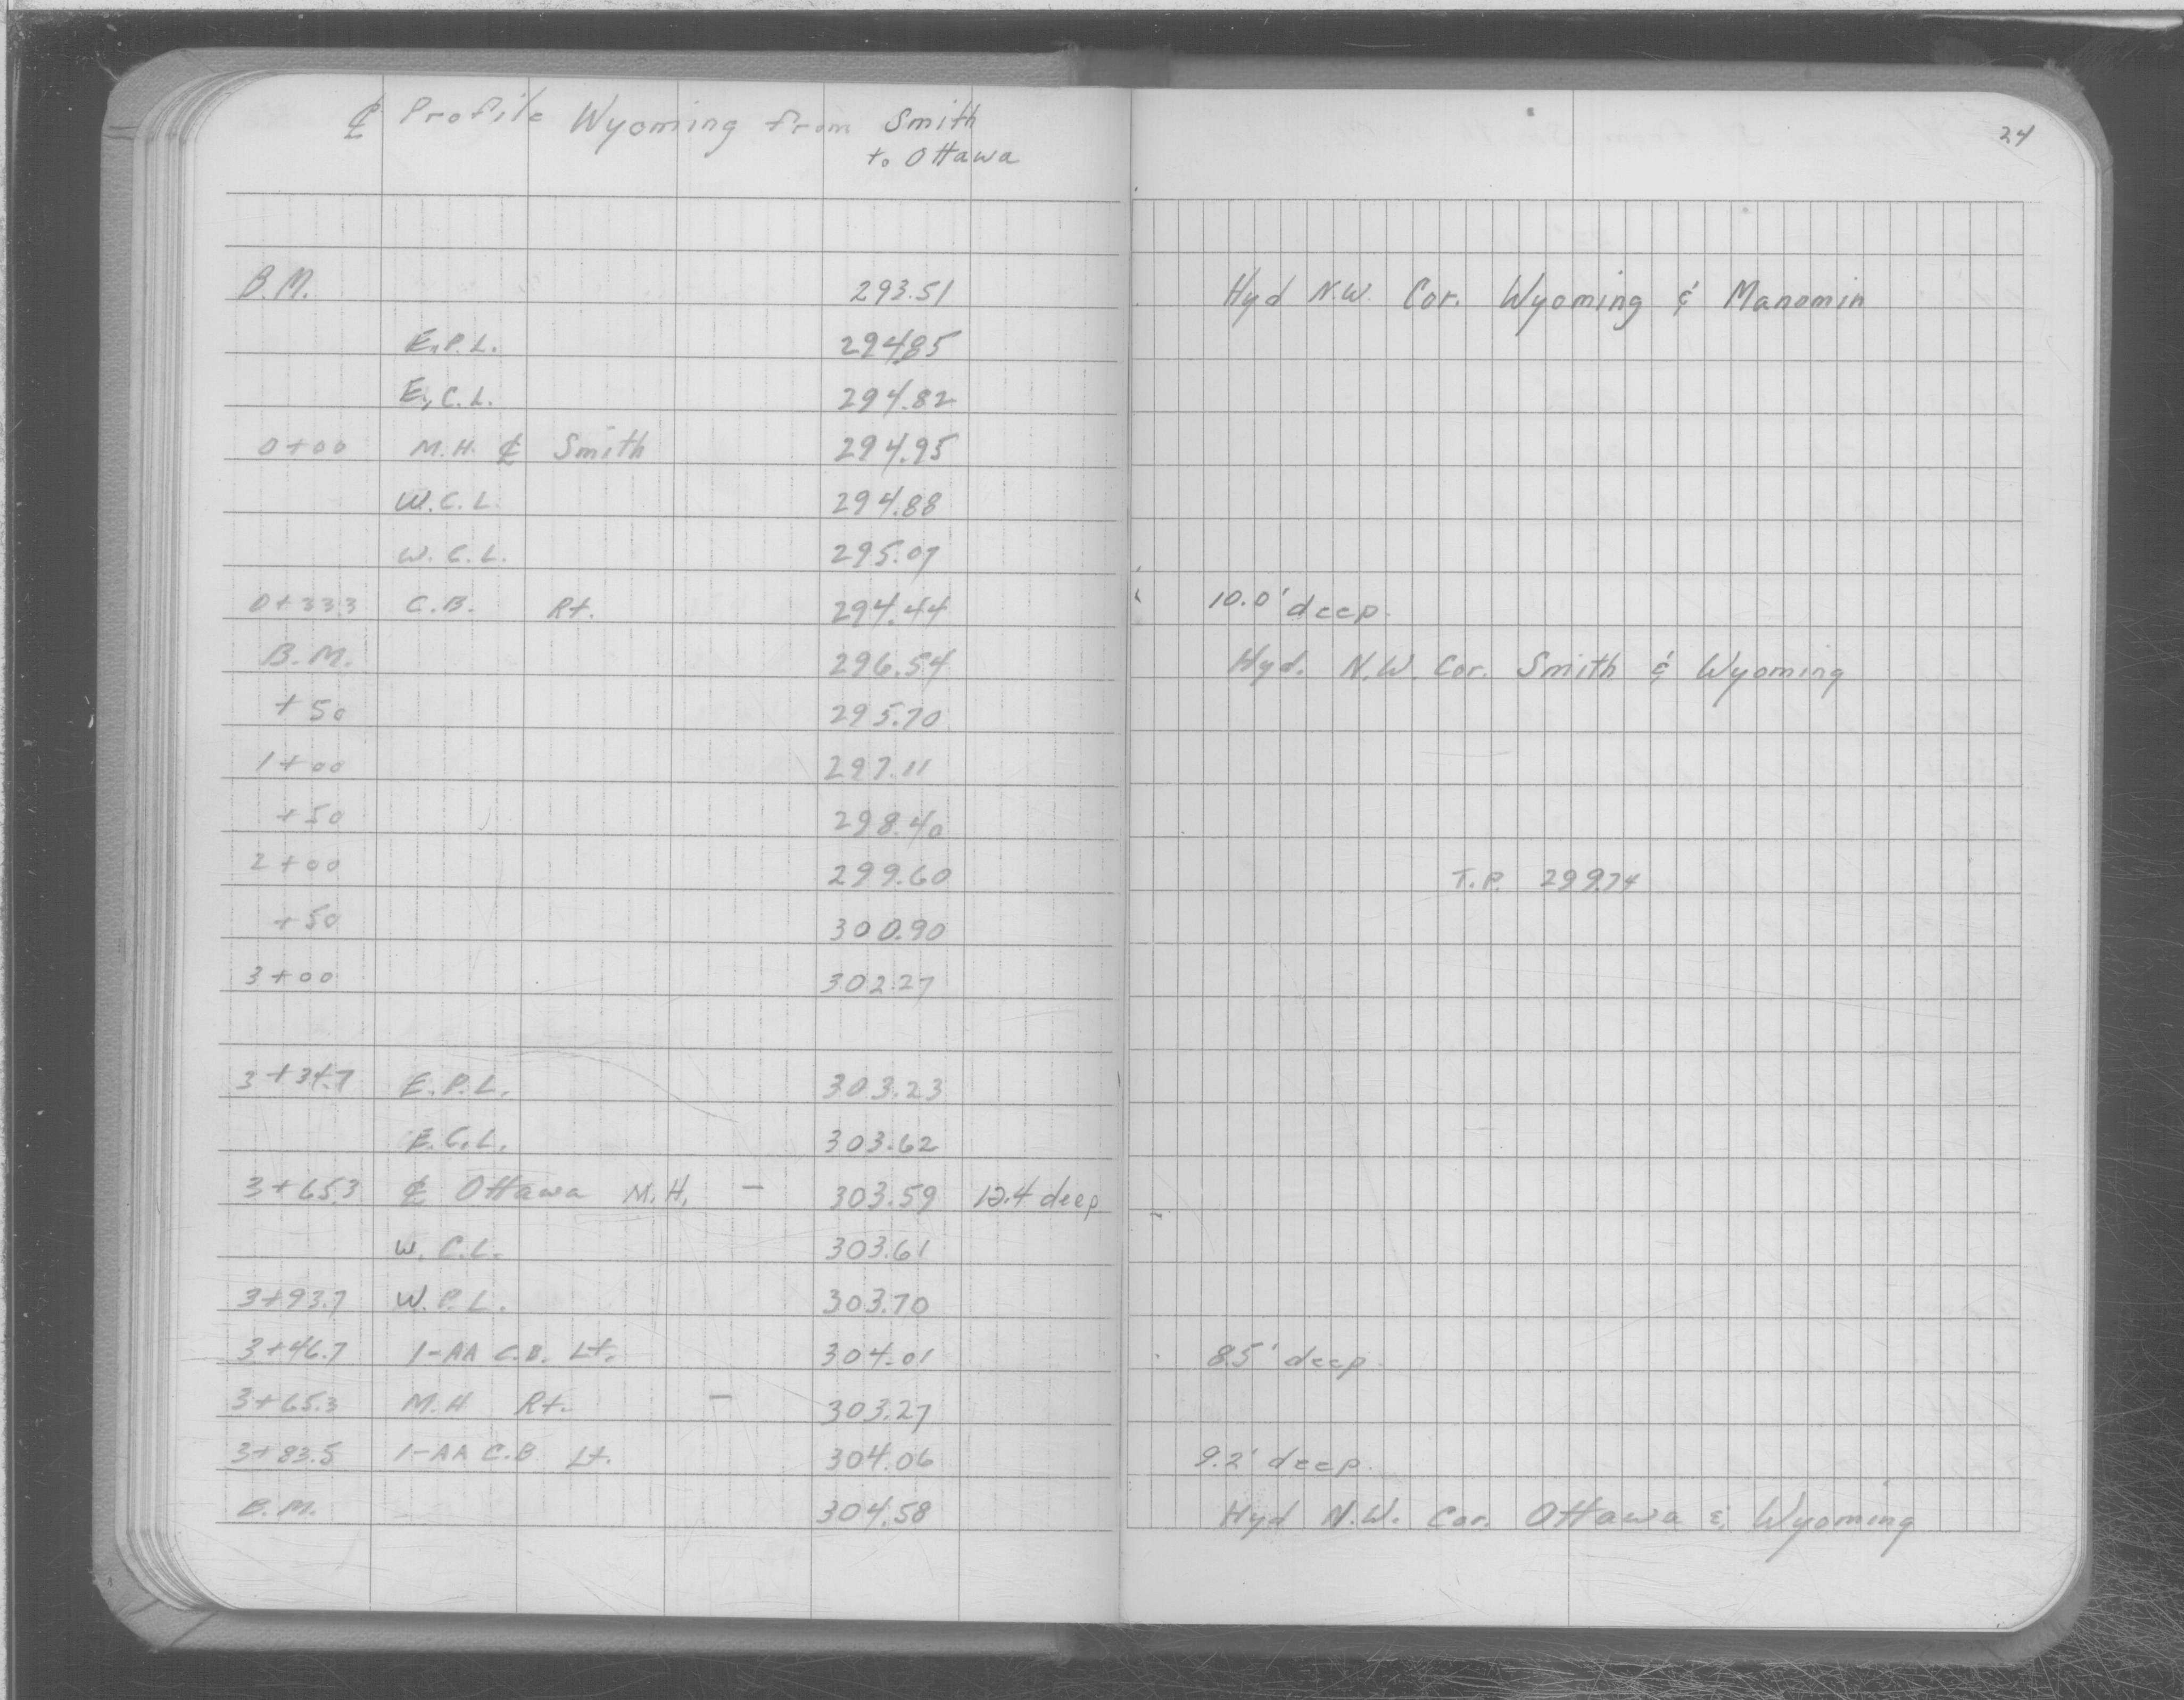 ℄ Profile Wyoming from Smith
to Ottawa
24
B.M. 293.51 Hyd N.W. Cor. Wyoming & Manomin
E.P.L. 294.85
E.C.L. 294.82
0+00 M.H. ℄ Smith 294.95
W.C.L. 294.88
W.C.L. 295.07
0+33.3 C.B. Rt. 294.44 10.0' deep.
B.M. 296.54 Hyd. N.W. Cor. Smith & Wyoming
+50 295.70
1+00 297.11
+50 298.40
2+00 299.60 T.P. 299.74
+50 300.90
3+00 302.27
3+34.7 E.P.L. 303.23
E.C.L. 303.62
3+65.3 ℄ Ottawa M.H. — 303.59 12.4 deep
W.C.L. 303.61
3+93.7 W.P.L. 303.70
3+46.7 1-AA C.B. Lt. 304.01 8.5' deep.
3+65.3 M.H Rt. — 303.27
3+83.5 1-AA C.B Lt. 304.06 9.2' deep.
B.M. 304.58 Hyd N.W. Cor. Ottawa & Wyoming